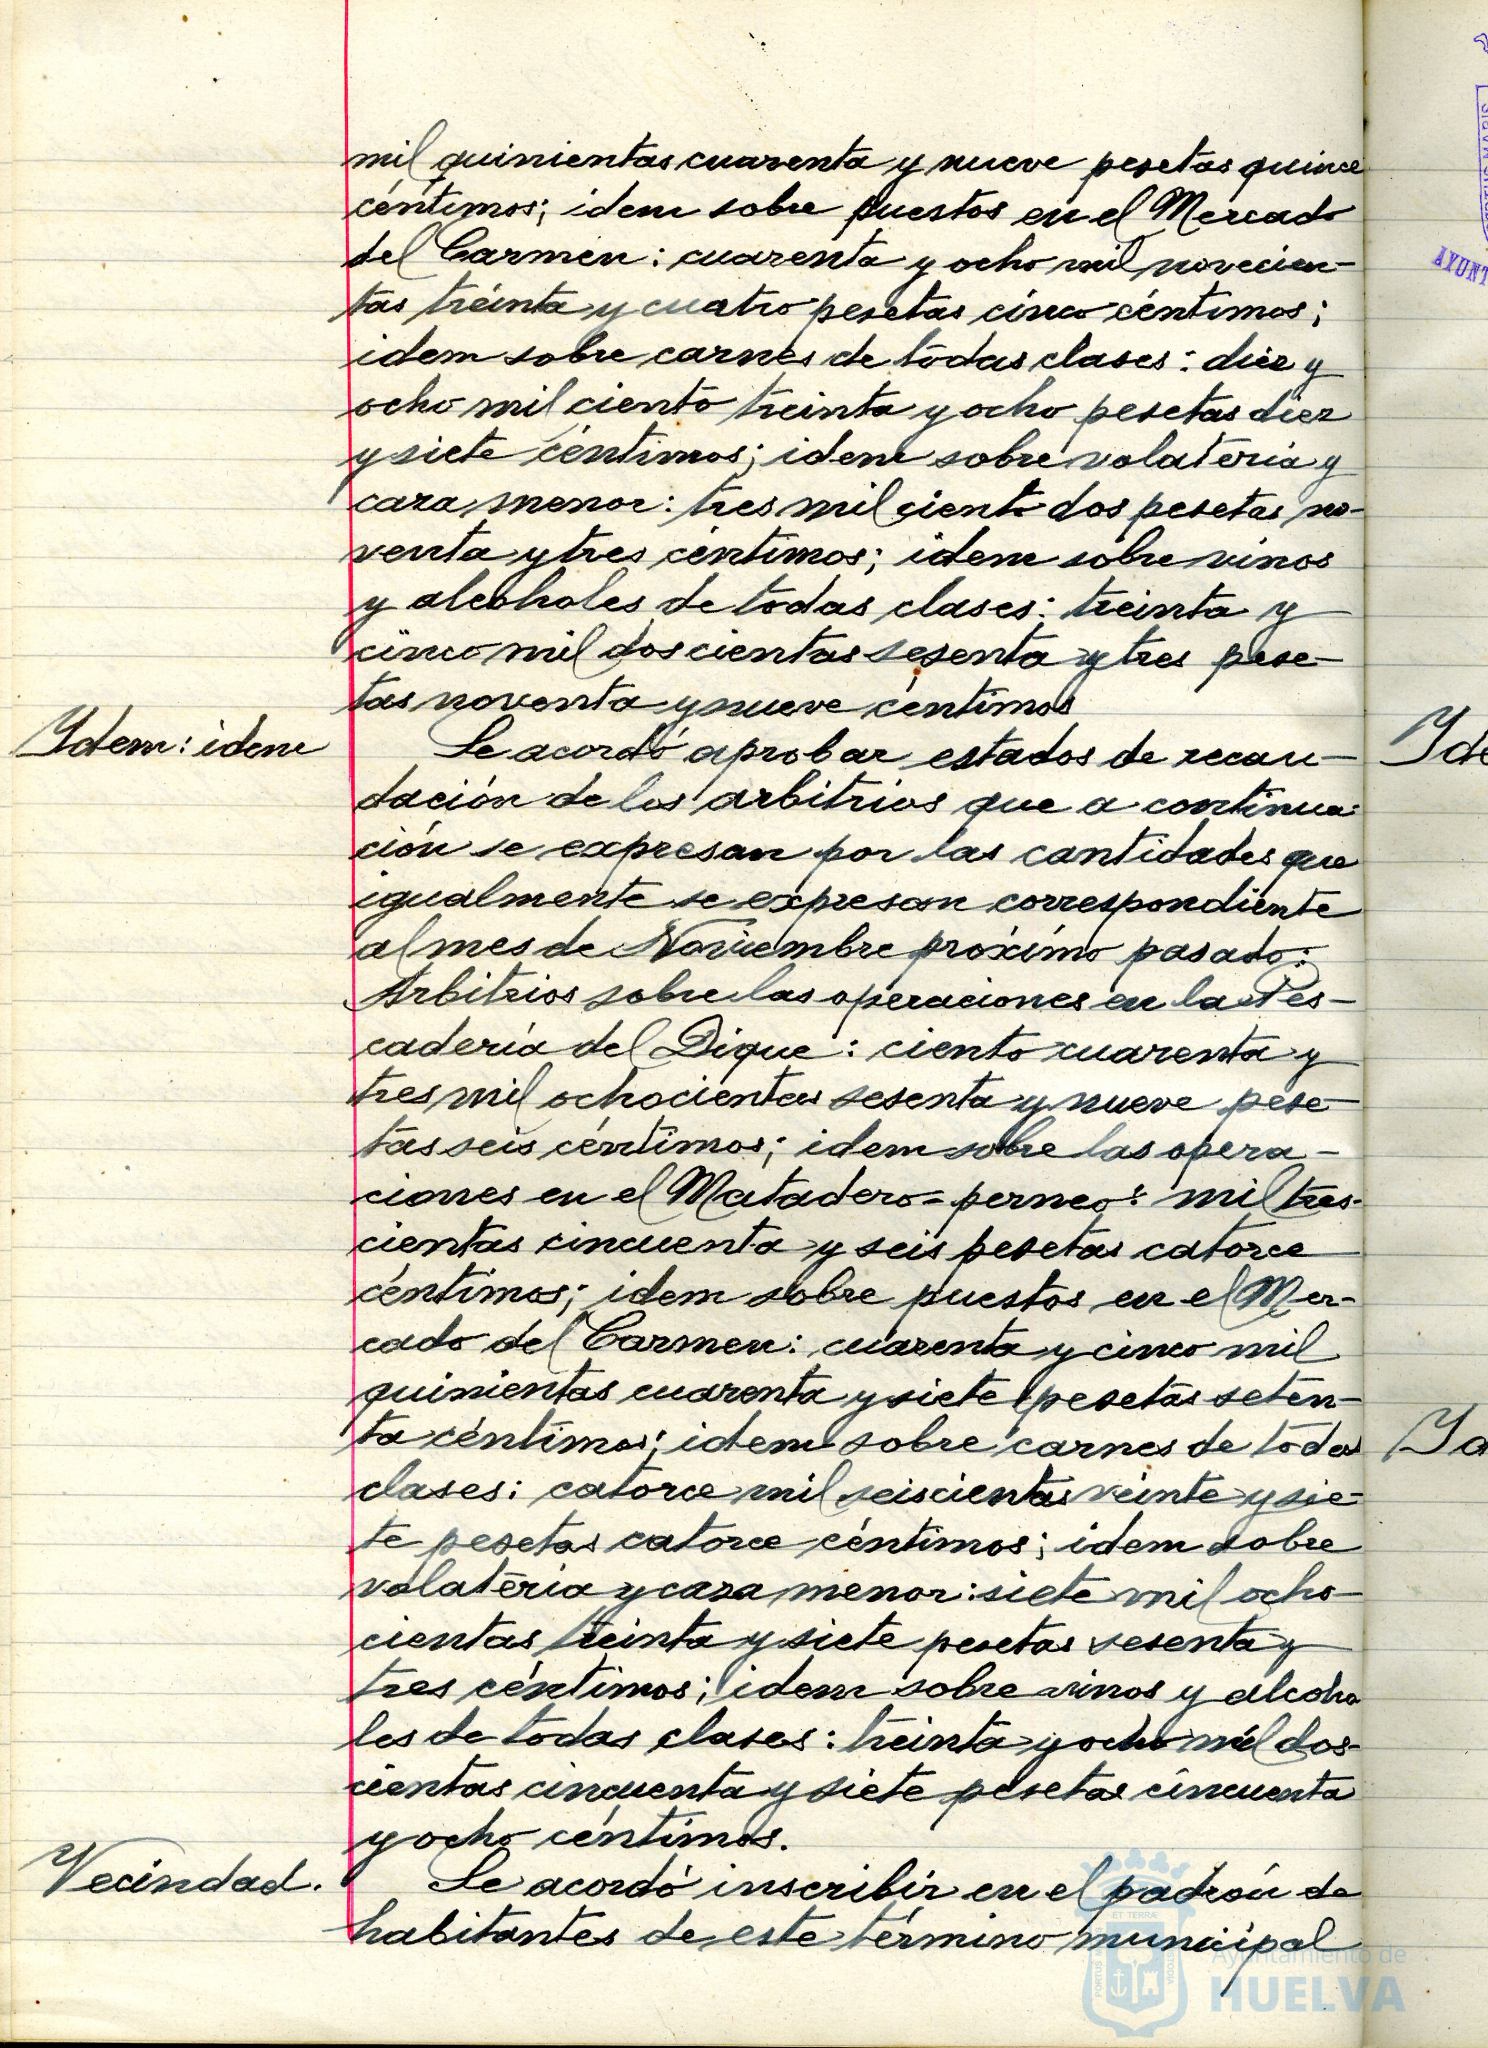 mil quinientas cuarenta y nueve pesetas quince
céntimos; idem sobre puestos en el Mercado
del Carmen: cuarenta y ocho mil novecien-
tas treinta y cuatro pesetas cinco céntimos;
idem sobre carnes de todas clases: diez y
ocho mil ciento treinta y ocho pesetas diez
y siete céntimos; idem sobre volateria y
caza menor: tres mil ciento dos pesetas no-
venta y tres céntimos; idem sobre vinos
y alcoholes de todas clases: treinta y
cinco mil doscientas sesenta y tres pese-
tas noventa y nueve céntimos
Idem: idem
Se acordó aprobar estados de recau-
dación de los arbitrios que a continua-
ción se expresan por las cantidades que
igualmente se expresan correspondiente
al mes de Noviembre próximo pasado:
Arbitrios sobre las operaciones en la Pes-
cadería del Dique: ciento cuarenta y
tres mil ochocientas sesenta y nueve pese-
tas seis céntimos; idem sobre las opera-
ciones en el Matadero = perneo: mil tres-
cientas cincuenta y seis pesetas catorce
céntimos; idem sobre puestos en el Mer-
cado del Carmen: cuarenta y cinco mil
quinientas cuarenta y siete pesetas seten-
ta céntimos; idem sobre carnes de todas
clases: catorce mil seiscientas veinte y sie-
te pesetas catorce céntimos; idem sobre
volateria y caza menor: siete mil ocho-
cientas treinta y siete pesetas sesenta y
tres céntimos; idem sobre vinos y alcoho
les de todas clases: treinta y ocho mil dos-
cientas cincuenta y siete pesetas cincuenta
y ocho céntimos.
Vecindad.
Se acordó inscribir en el padrón de
habitantes de este término municipal
Ayuntamiento de
HUELVA